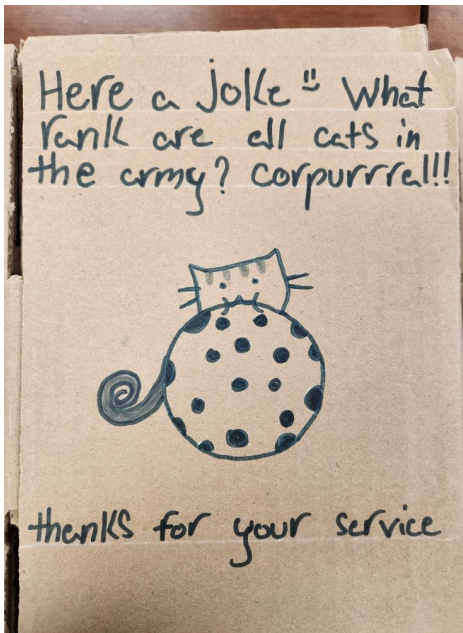 Here a joke What
rank are all cats in
the army? corpurrral!!!
thanks for your service